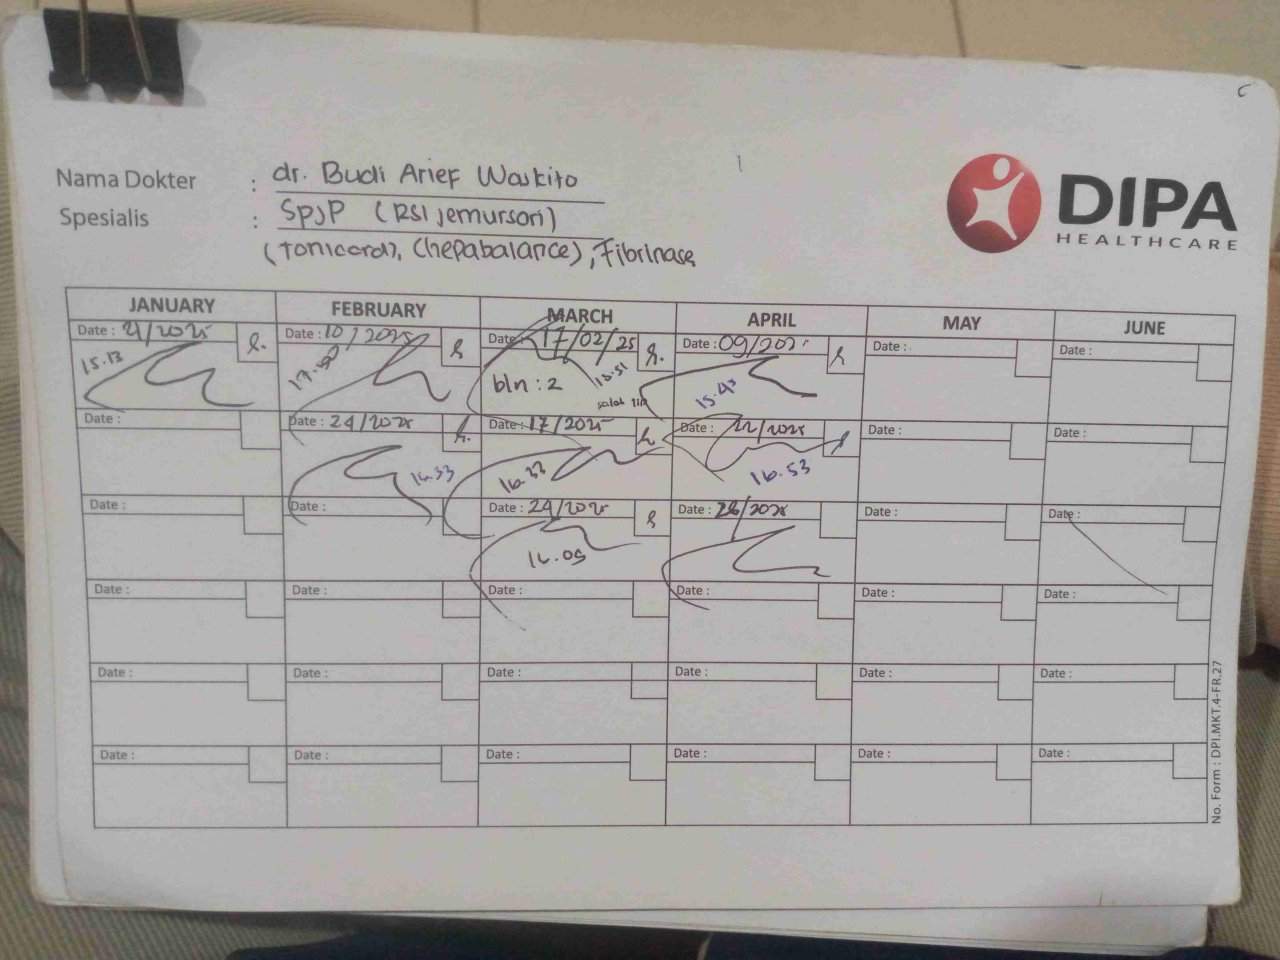 Nama Dokter : dr. Budi Arief Waskito
Spesialis : SpJP (RSI jemursari)
(Tonicard), (hepabalance), Fibrinase
DIPA
HEALTHCARE
JANUARY FEBRUARY MARCH APRIL MAY JUNE
Date : 21/2025 Date : 10/2025 Date : 17/02/25 Date : 09/202 Date : Date :
15.13 17. bln : 2 15.51 15.43
salah
Date : Date : 24/2025 Date : 17/2025 Date : 22/2025 Date : Date :
16.33 16.32 16.53
Date : Date : Date : 24/2025 Date : 28/2025 Date : Date :
16.05
Date : Date : Date : Date : Date : Date :
Date : Date : Date : Date : Date : Date :
Date : Date : Date : Date : Date : Date :
No. Form : DPI.MKT.4-FR.27